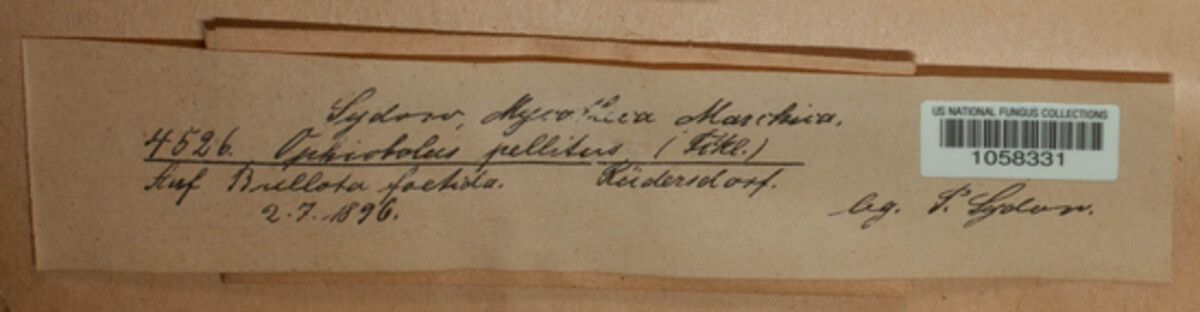 Sydow, Mycotheca Marchica.
4526. Ophiobolus pellitus (Fckl.)
Auf Ballota foetida. Rüdersdorf.
2.7.1896.
leg. P. Sydow.
US NATIONAL FUNGUS COLLECTIONS
1058331